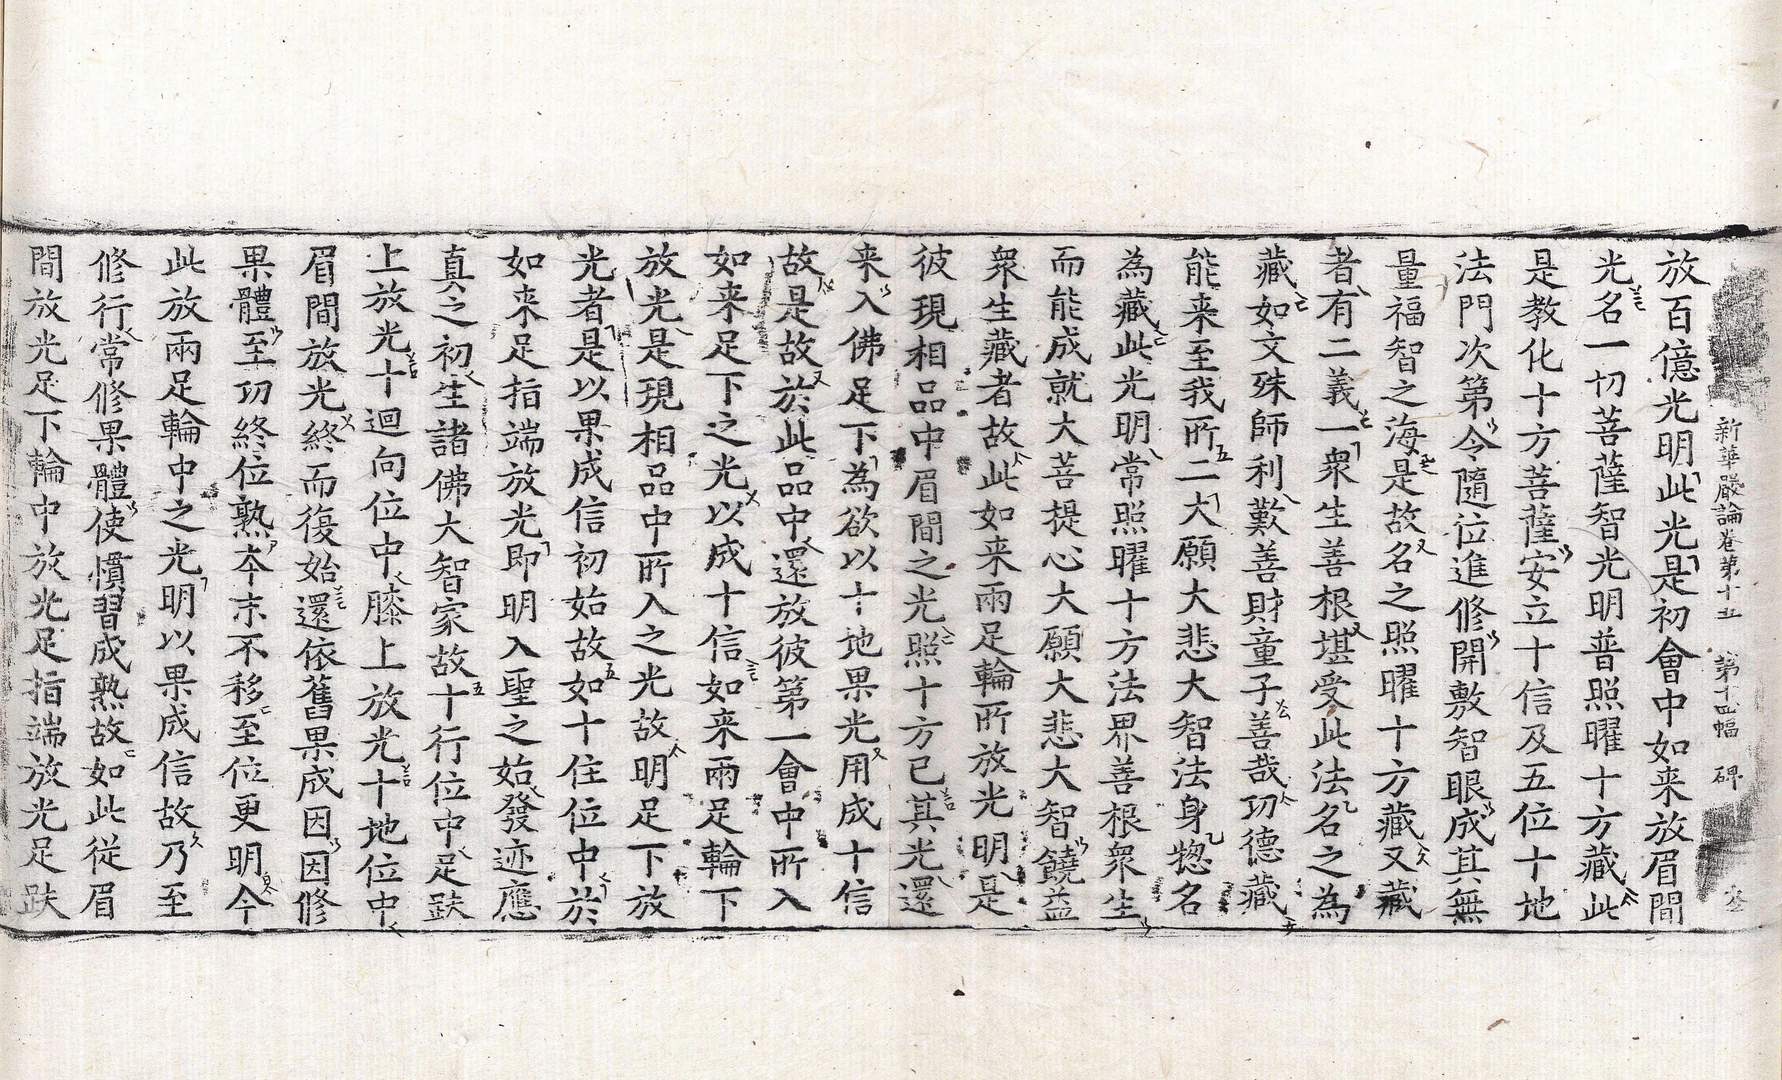 新華嚴論卷第十五　第十四幅　碑
放百億光明此光是初會中如来放眉間
光名一切菩薩智光明普照曜十方藏此
是教化十方菩薩安立十信及五位十地
法門次第令隨位進修開敷智眼成其無
量福智之海是故名之照曜十方藏又藏
者有二義一衆生善根堪受此法名之為
藏如文殊師利歎善財童子善哉㓛德藏
能来至我所二大願大悲大智法身惣名
為藏此光明常照曜十方法界善根衆生
而能成就大菩提心大願大悲大智饒益
衆生藏者故此如来兩足輪所放光明是
彼現相品中眉間之光照十方已其光還
来入佛足下為欲以十地果光用成十信
故是故於此品中還放彼第一會中所入
如来足下之光以成十信如来兩足輪下
放光是現相品中所入之光故明足下放
光者是以果成信初始故如十住位中於
如来足指端放光即明入聖之始發迹應
真之初生諸佛大智家故十行位中足趺
上放光十迴向位中膝上放光十地位中
眉間放光終而復始還依舊果成因因修
果體至㓛終位熟夲末不移至位更明今
此放兩足輪中之光明以果成信故乃至
修行常修果體使慣習成熟故如此從眉
間放光足下輪中放光足指端放光足趺